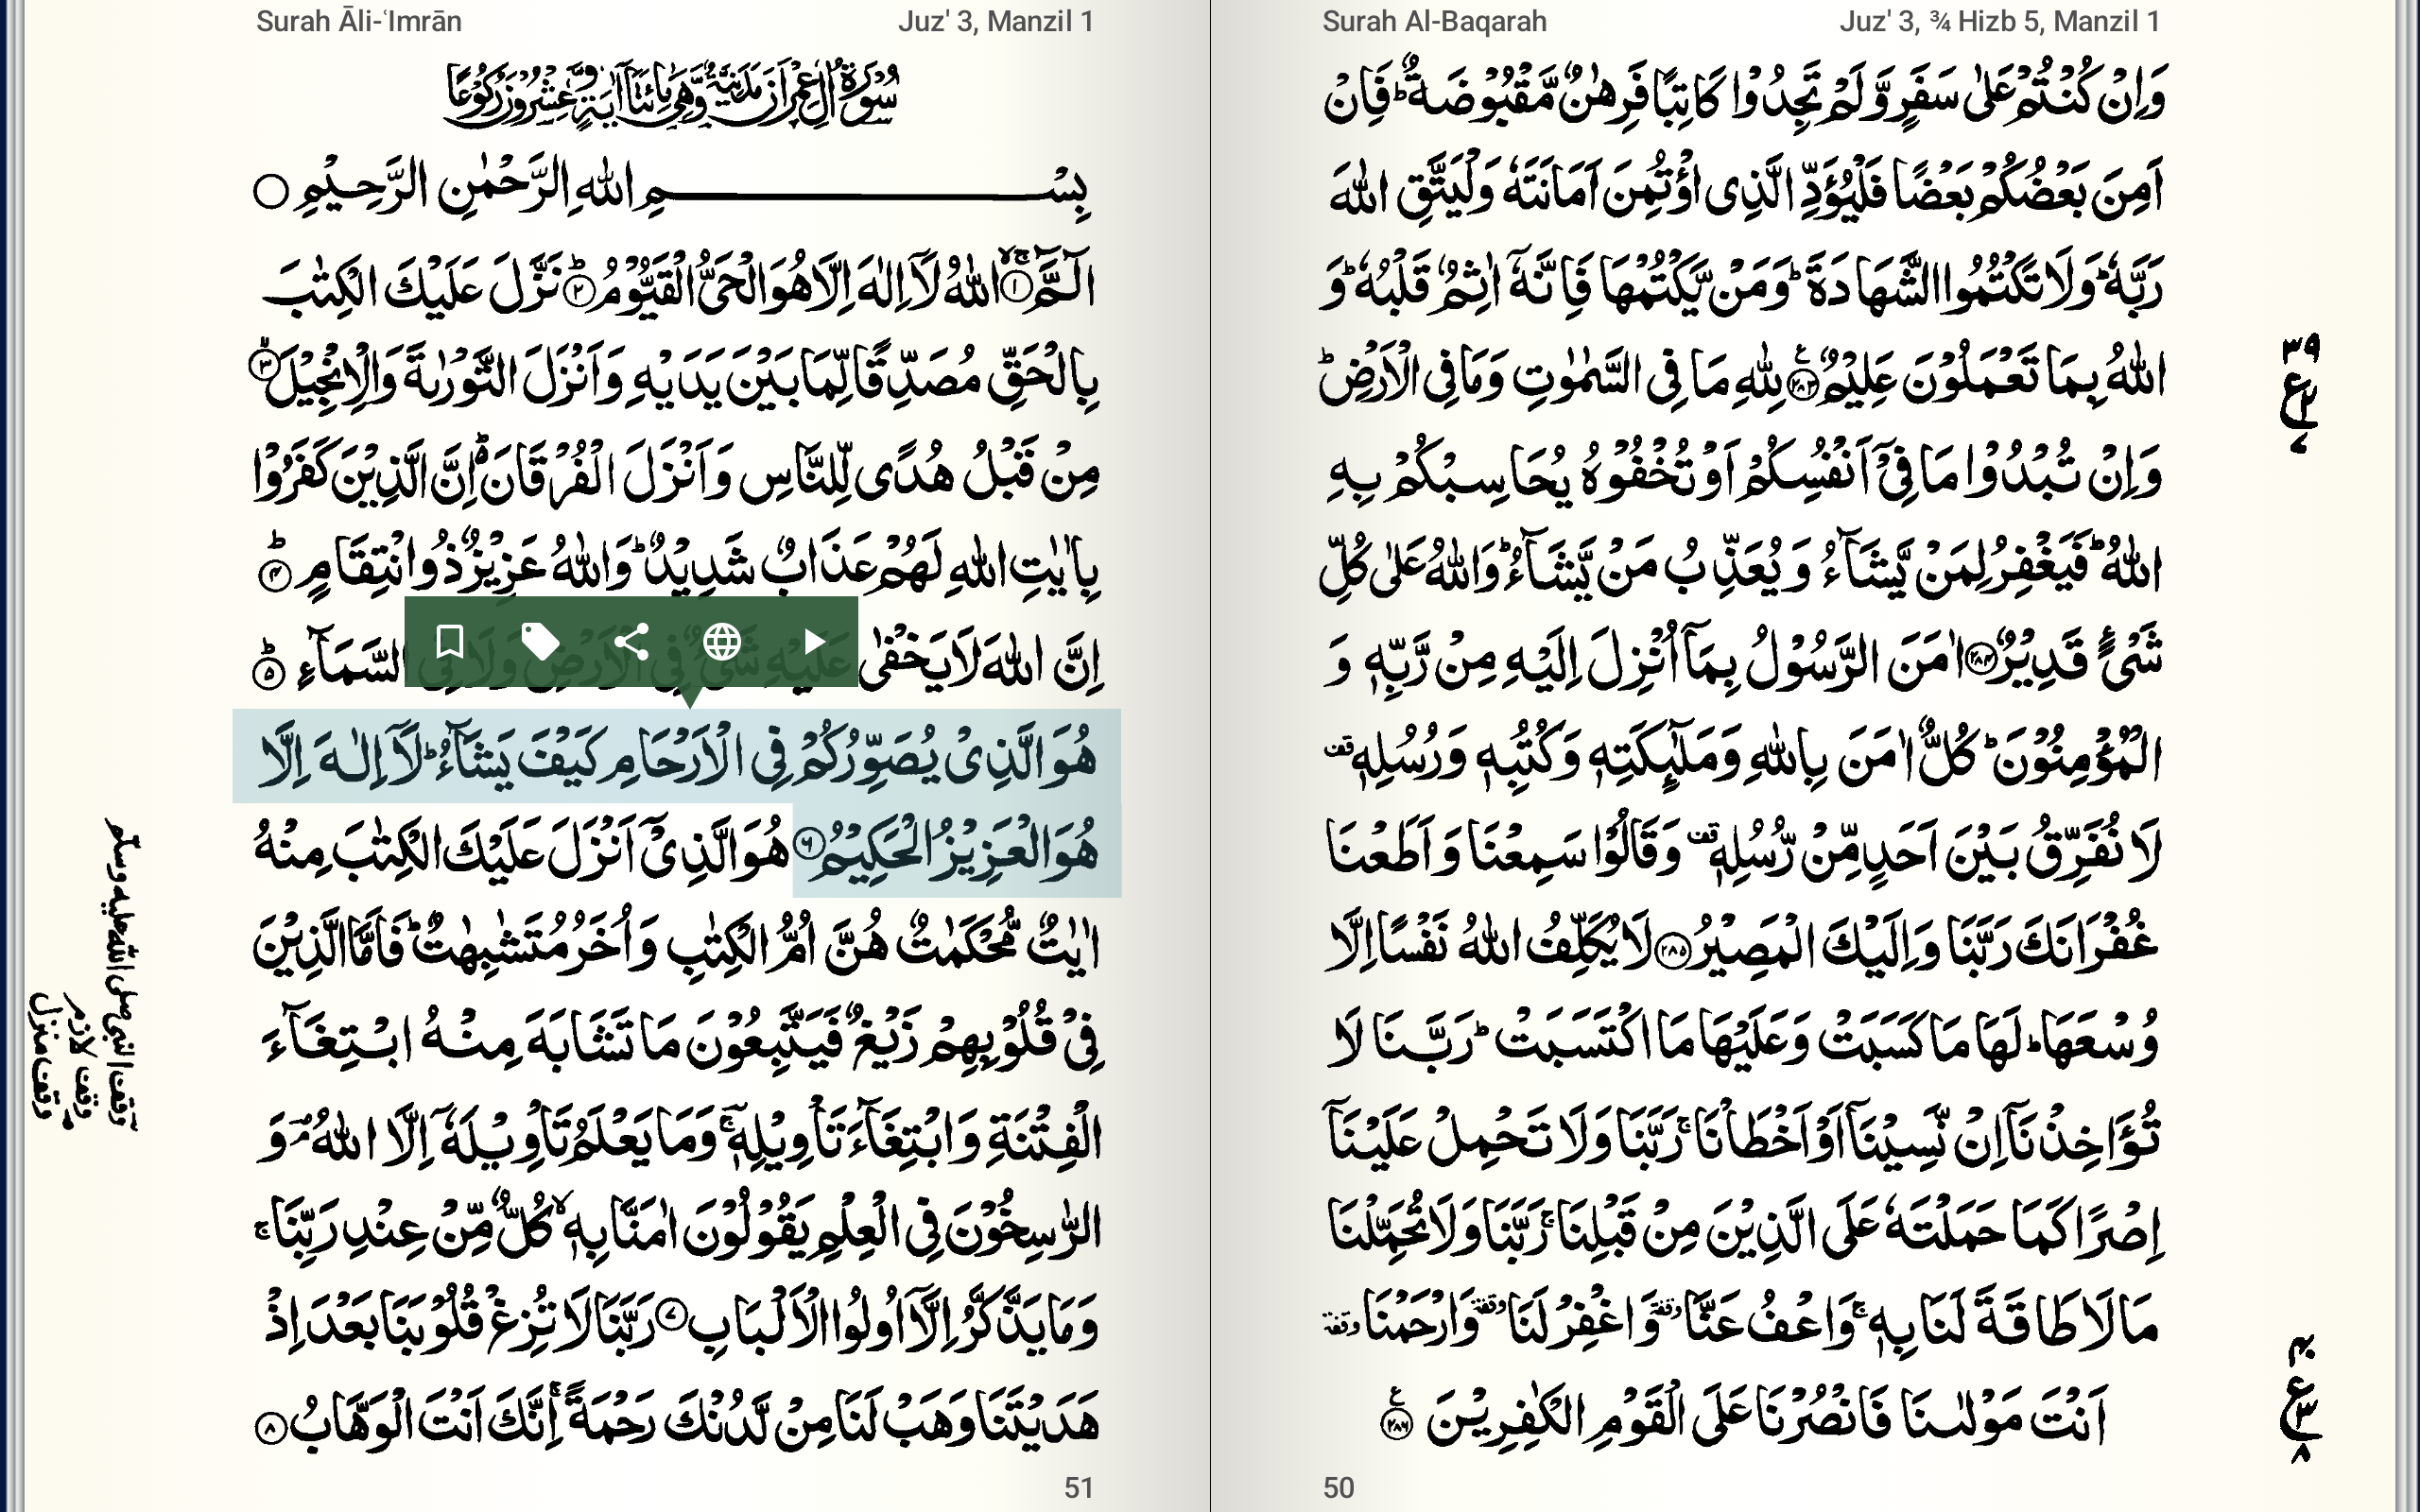 Surah Al-Baqarah
Juz' 3, ¾ Hizb 5, Manzil 1
وَاِنْ كُنْتُمْ عَلٰى سَفَرٍ وَّلَمْ تَجِدُوْا كَاتِبًا فَرِهٰنٌ مَّقْبُوْضَةٌ ؕ فَاِنْ
اَمِنَ بَعْضُكُمْ بَعْضًا فَلْيُؤَدِّ الَّذِى اؤْتُمِنَ اَمَانَتَهٗ وَلْيَتَّقِ اللّٰهَ
رَبَّهٗ ؕ وَلَا تَكْتُمُوا الشَّهَادَةَ ؕ وَمَنْ يَّكْتُمْهَا فَاِنَّهٗۤ اٰثِمٌ قَلْبُهٗ ؕ وَ
اللّٰهُ بِمَا تَعْمَلُوْنَ عَلِيْمٌ ۲۸۳ لِلّٰهِ مَا فِى السَّمٰوٰتِ وَمَا فِى الْاَرْضِ ؕ
وَاِنْ تُبْدُوْا مَا فِىْۤ اَنْفُسِكُمْ اَوْ تُخْفُوْهُ يُحَاسِبْكُمْ بِهِ
اللّٰهُ ؕ فَيَغْفِرُ لِمَنْ يَّشَآءُ وَيُعَذِّبُ مَنْ يَّشَآءُ ؕ وَاللّٰهُ عَلٰى كُلِّ
شَىْءٍ قَدِيْرٌ ۲۸۴ اٰمَنَ الرَّسُوْلُ بِمَاۤ اُنْزِلَ اِلَيْهِ مِنْ رَّبِّهٖ وَ
الْمُؤْمِنُوْنَ ؕ كُلٌّ اٰمَنَ بِاللّٰهِ وَمَلٰٓئِكَتِهٖ وَكُتُبِهٖ وَرُسُلِهٖ قف
لَا نُفَرِّقُ بَيْنَ اَحَدٍ مِّنْ رُّسُلِهٖ قف وَقَالُوْا سَمِعْنَا وَاَطَعْنَا
غُفْرَانَكَ رَبَّنَا وَاِلَيْكَ الْمَصِيْرُ ۲۸۵ لَا يُكَلِّفُ اللّٰهُ نَفْسًا اِلَّا
وُسْعَهَا ؕ لَهَا مَا كَسَبَتْ وَعَلَيْهَا مَا اكْتَسَبَتْ ؕ رَبَّنَا لَا
تُؤَاخِذْنَاۤ اِنْ نَّسِيْنَاۤ اَوْ اَخْطَاْنَا ۚ رَبَّنَا وَلَا تَحْمِلْ عَلَيْنَاۤ
اِصْرًا كَمَا حَمَلْتَهٗ عَلَى الَّذِيْنَ مِنْ قَبْلِنَا ۚ رَبَّنَا وَلَا تُحَمِّلْنَا
مَا لَا طَاقَةَ لَنَا بِهٖ ۚ وَاعْفُ عَنَّا وقفة وَاغْفِرْ لَنَا وقفة وَارْحَمْنَا وقفة
اَنْتَ مَوْلٰىنَا فَانْصُرْنَا عَلَى الْقَوْمِ الْكٰفِرِيْنَ ۲۸۶ ع
۳۹
ع
۲
۷
ع
۳
۸
50
Surah Āli-ʿImrān
Juz' 3, Manzil 1
سُوْرَةُ اٰلِ عِمْرَانَ مَدَنِيَّةٌ وَّهِىَ مِائَتَا اٰيَةٍ وَّعِشْرُوْنَ رُكُوْعًا
بِسْمِ اللّٰهِ الرَّحْمٰنِ الرَّحِيْمِ
الٓمّٓ ۱ اللّٰهُ لَاۤ اِلٰهَ اِلَّا هُوَ الْحَىُّ الْقَيُّوْمُ ؕ ۲ نَزَّلَ عَلَيْكَ الْكِتٰبَ
بِالْحَقِّ مُصَدِّقًا لِّمَا بَيْنَ يَدَيْهِ وَاَنْزَلَ التَّوْرٰىةَ وَالْاِنْجِيْلَ ۳
مِنْ قَبْلُ هُدًى لِّلنَّاسِ وَاَنْزَلَ الْفُرْقَانَ ؕ اِنَّ الَّذِيْنَ كَفَرُوْا
بِاٰيٰتِ اللّٰهِ لَهُمْ عَذَابٌ شَدِيْدٌ ؕ وَاللّٰهُ عَزِيْزٌ ذُو انْتِقَامٍ ؕ ۴
اِنَّ اللّٰهَ لَا يَخْفٰى عَلَيْهِ شَىْءٌ فِى الْاَرْضِ وَلَا فِى السَّمَآءِ ؕ ۵
هُوَ الَّذِىْ يُصَوِّرُكُمْ فِى الْاَرْحَامِ كَيْفَ يَشَآءُ ؕ لَاۤ اِلٰهَ اِلَّا
هُوَ الْعَزِيْزُ الْحَكِيْمُ ۶ هُوَ الَّذِىْۤ اَنْزَلَ عَلَيْكَ الْكِتٰبَ مِنْهُ
اٰيٰتٌ مُّحْكَمٰتٌ هُنَّ اُمُّ الْكِتٰبِ وَاُخَرُ مُتَشٰبِهٰتٌ ؕ فَاَمَّا الَّذِيْنَ
فِىْ قُلُوْبِهِمْ زَيْغٌ فَيَتَّبِعُوْنَ مَا تَشَابَهَ مِنْهُ ابْتِغَآءَ
الْفِتْنَةِ وَابْتِغَآءَ تَاْوِيْلِهٖ ۚ وَمَا يَعْلَمُ تَاْوِيْلَهٗۤ اِلَّا اللّٰهُ ۘ وَ
الرّٰسِخُوْنَ فِى الْعِلْمِ يَقُوْلُوْنَ اٰمَنَّا بِهٖ ۙ كُلٌّ مِّنْ عِنْدِ رَبِّنَا ۚ
وَمَا يَذَّكَّرُ اِلَّاۤ اُولُوا الْاَلْبَابِ ۷ رَبَّنَا لَا تُزِغْ قُلُوْبَنَا بَعْدَ اِذْ
هَدَيْتَنَا وَهَبْ لَنَا مِنْ لَّدُنْكَ رَحْمَةً ۚ اِنَّكَ اَنْتَ الْوَهَّابُ ۸
وقف النبى صلى الله عليه وسلم
وقف لازم
وقف منزل
51